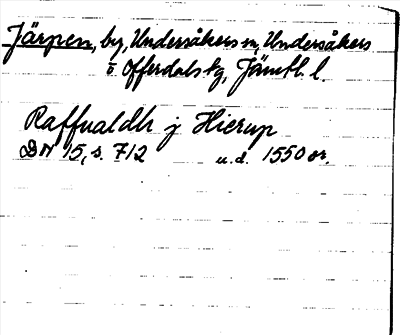 Järpen, by, Undersåkers sn, Undersåkers
o. Offerdals tg, Jämtl. l.
Raffualdh j Hierup
DN 15, s. 712 u.d. 1550 or.